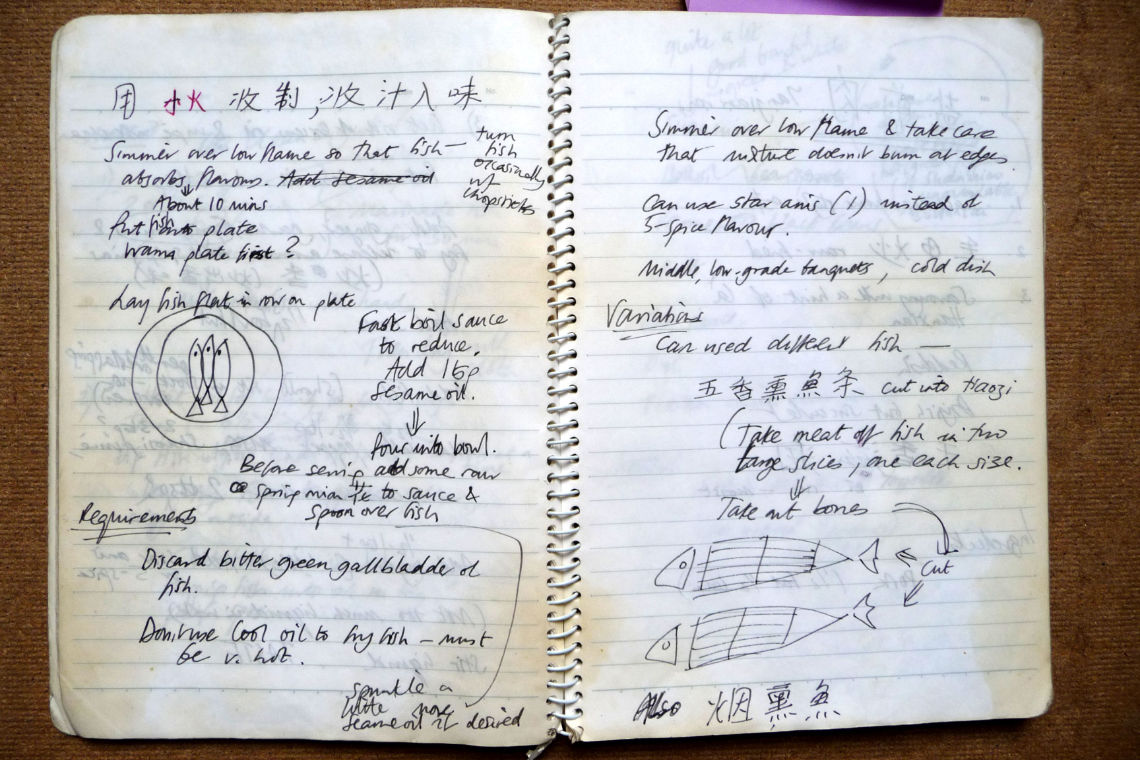 用 小火 收 制, 收 汁 入 味
Simmer over low flame so that fish—
absorbs flavours. Add sesame oil
turn
fish
occasionally
w/
chopsticks
About 10 mins
Put fish onto plate
warm plate first?
Lay fish flat in row on plate
Fast boil sauce
to reduce.
Add 1 tsp
sesame oil.
Pour into bowl.
Before serving add some raw
spring onion to sauce &
Spoon over fish
Requirements
Discard bitter green gallbladder of
fish.
Don't use cool oil to fry fish – must
be v. hot.
Sprinkle a
little more
sesame oil if desired
Simmer over low flame & take care
that mixture doesn't burn at edges.
Can use star anis (1) instead of
5-spice flavour.
Middle, low-grade banquets, cold dish
Variations
Can used different fish —
五香熏魚条 cut into tiaozi
(Take meat off fish in two
large slices, one each size.
Take out bones
Cut
Also 烟熏魚